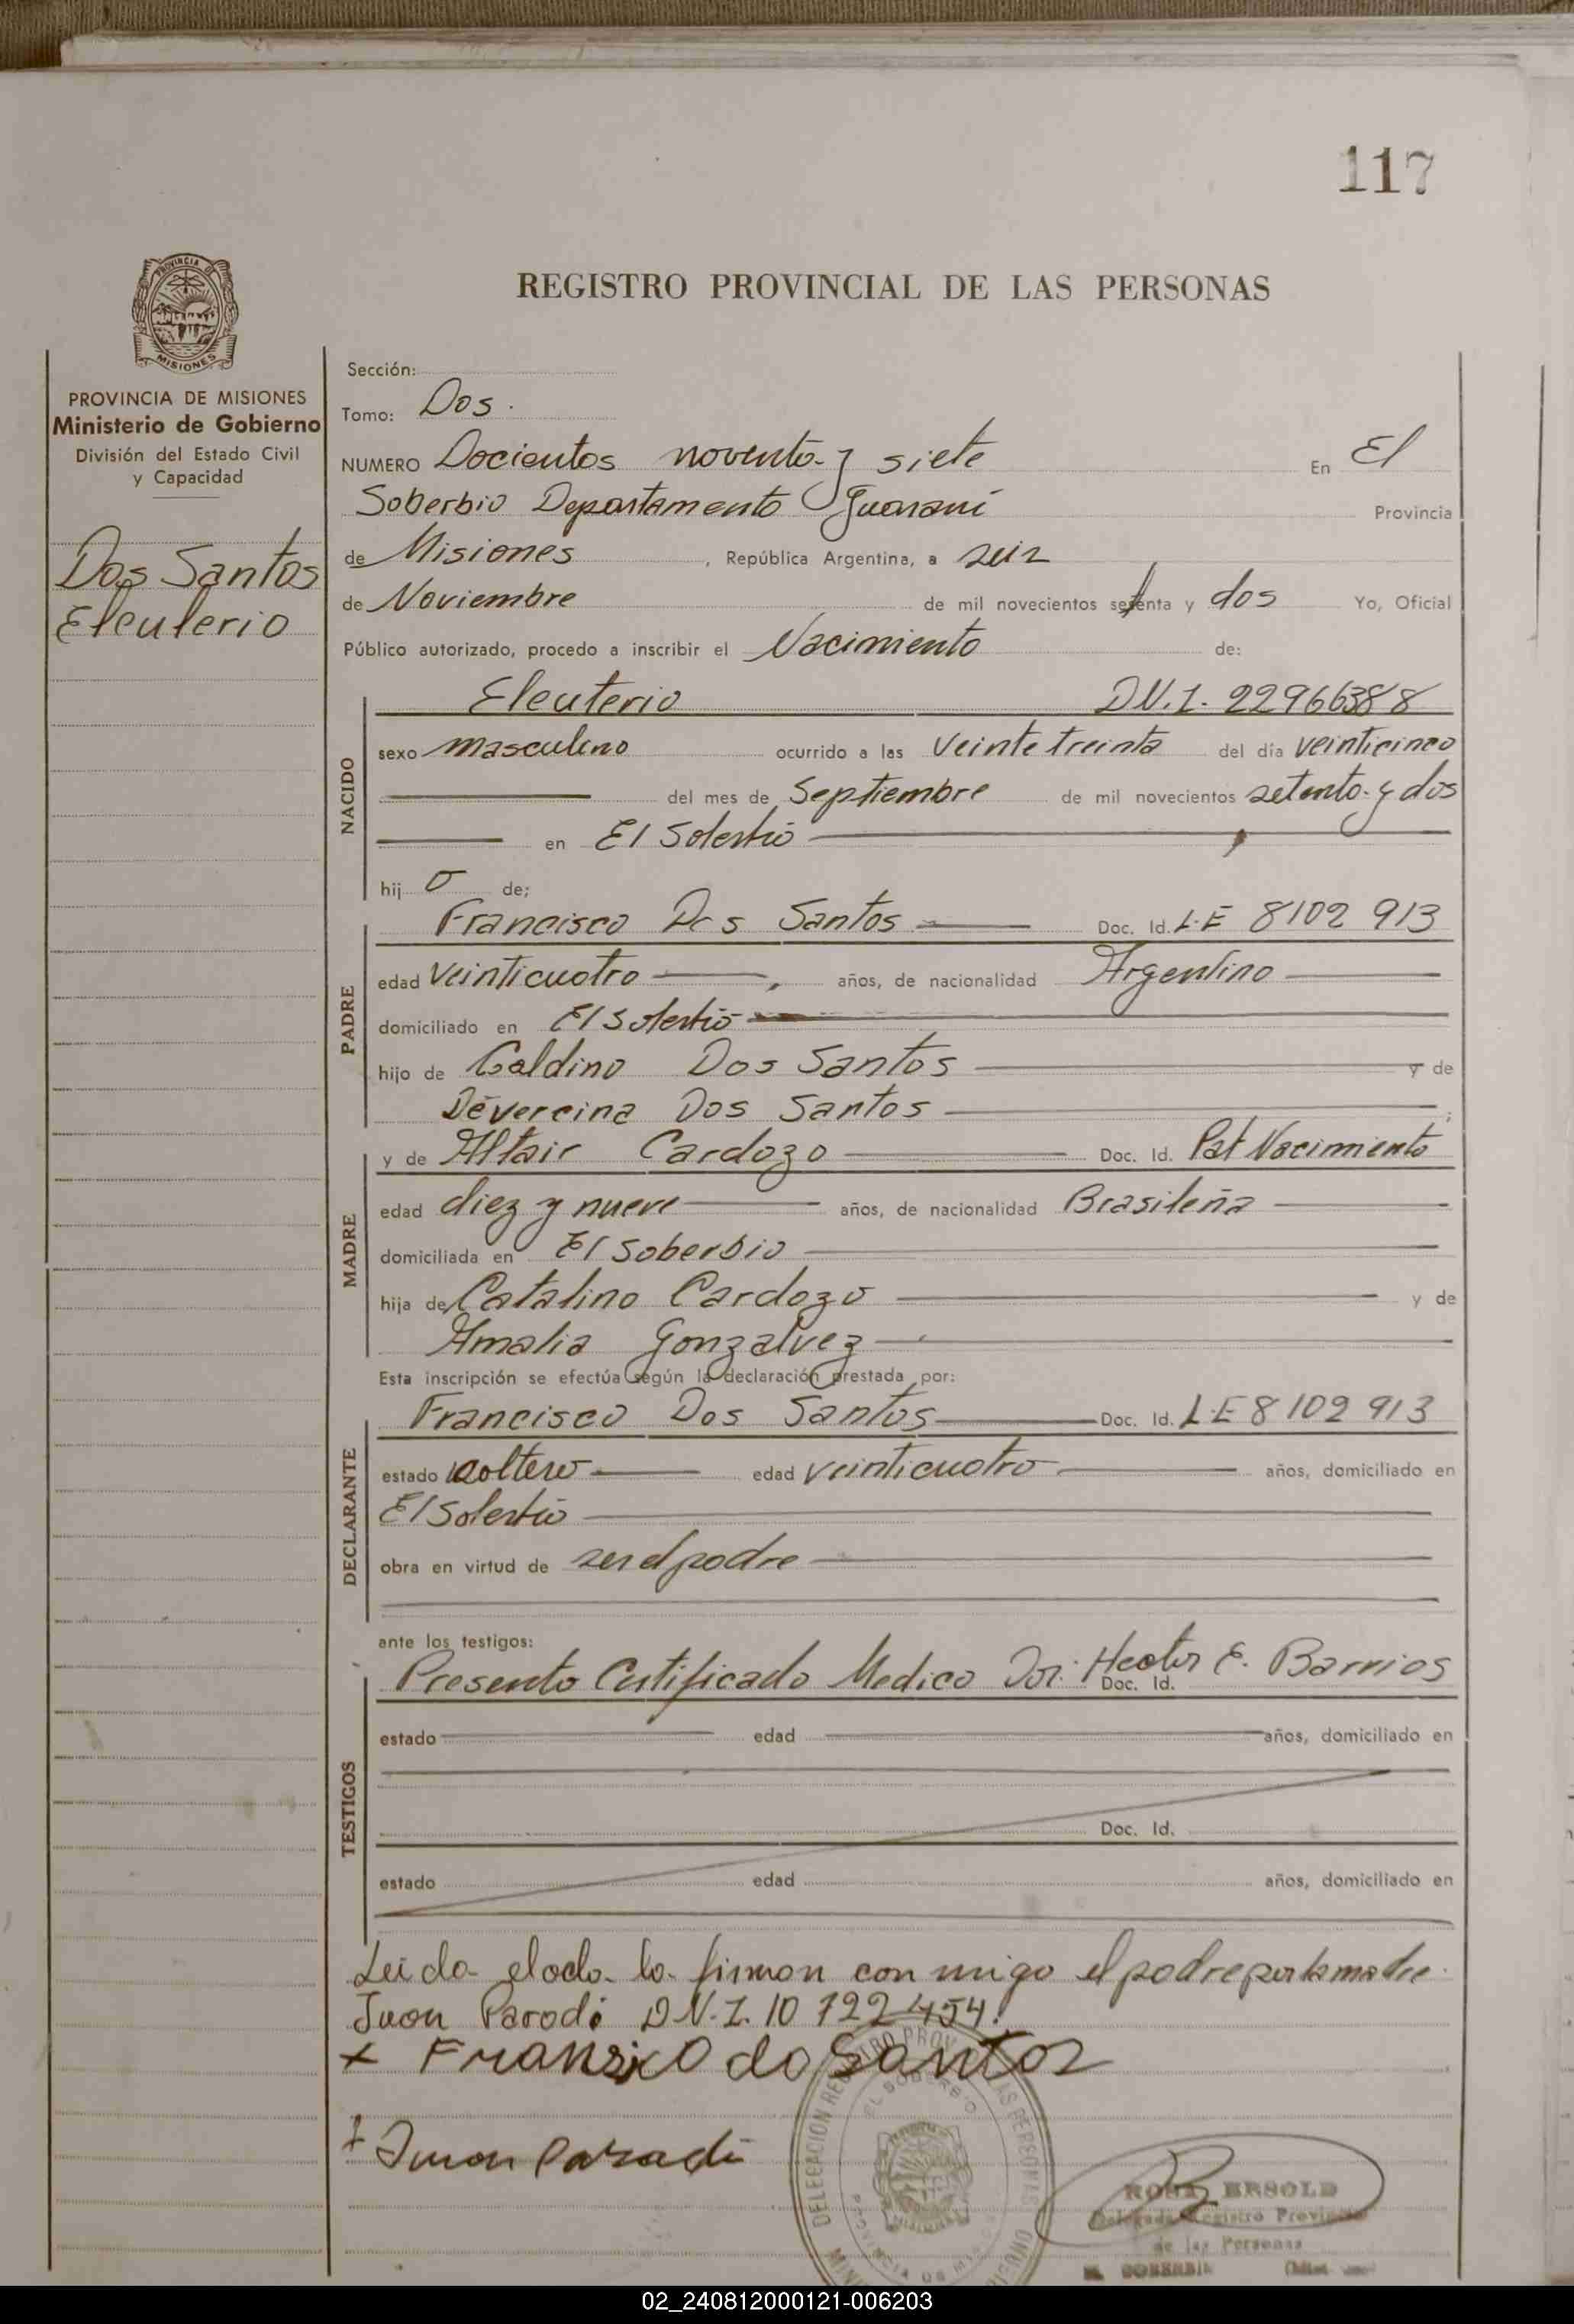 117
PROVINCIA DE
MISIONES
REGISTRO PROVINCIAL DE LAS PERSONAS
PROVINCIA DE MISIONES
Ministerio de Gobierno
División del Estado Civil
y Capacidad
Dos Santos
Eleuterio
Sección:
Tomo: Dos.
NUMERO Docientos noventa y siete En El
Soberbio Departamento Guaraní Provincia
de Misiones, República Argentina, a seis
de Noviembre de mil novecientos setenta y dos Yo, Oficial
Público autorizado, procedo a inscribir el Nacimiento de:
NACIDO
Eleuterio D.N.I. 22966388
sexo masculino ocurrido a las veinte treinta del día veinticinco
del mes de Septiembre de mil novecientos setenta y dos
en El Soberbio
hij o de;
PADRE
Francisco Dos Santos Doc. Id. L.E 8102 913
edad veinticuatro, años, de nacionalidad Argentino
domiciliado en El Soberbio
hijo de Galdino Dos Santos y de
Devercina Dos Santos ;
MADRE
y de Altair Cardozo Doc. Id. Pat Nacimiento
edad diez y nueve años, de nacionalidad Brasileña
domiciliada en El Soberbio
hija de Catalino Cardozo y de
Amalia Gonzalvez
Esta inscripción se efectúa según la declaración prestada por:
DECLARANTE
Francisco Dos Santos Doc. Id. L.E 8102 913
estado soltero edad veinticuatro años, domiciliado en
El Soberbio
obra en virtud de ser el padre
ante los testigos:
TESTIGOS
Presento Certificado Medico Dor. Hector E. Barrios
Doc. Id.
estado edad años, domiciliado en
Doc. Id.
estado edad años, domiciliado en
Leida el acta la firman con migo el padre por la madre
Juan Parodi D.N.I. 10 722 454.
x Fransico do Santos
x Juan Parodi
DELEGACION REGISTRO PROV LAS PERSONAS
EL SOBERBIO
PROVINCIA DE MIS
ROSA ERSOLD
Delegada Registro Provincial
de las Personas
EL SOBERBIO
02_240812000121-006203